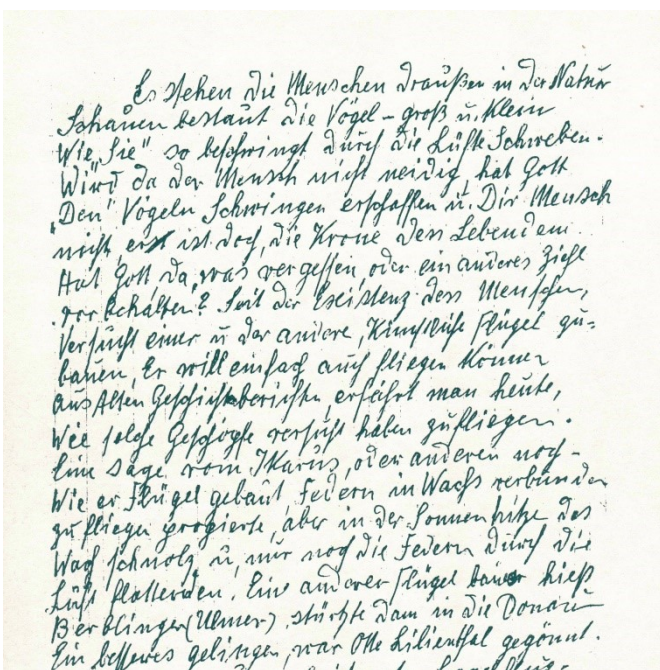 Es stehen die Menschen draußen in der Natur
Schauen bestaut die Vögel – groß u. Klein
Wie „Sie" so beschwingt durch die Lüfte Schweben.
Wird da der Mensch nicht neidig, hat Gott
„Den" Vögeln Schwingen erschaffen u. Dir Mensch
nicht, er ist doch, die Krone des Lebendem.
Hat Gott, da was vergessen oder ein anderes Ziehl
vorbehalten? Seit der Existenz dess Menschen,
Versucht einer u der andere, Künstliche Flügel zu=
bauen, Er will einfach auch fliegen Können
aus Alten Geschichtsberichten, erfährt man heute,
Wie solche Geschöpfe versucht haben zufliegen.
Eine Sage vom IKarus, oder anderen noch –
Wie er Flügel gebaut Federn in Wachs verbunden
zu fliegen probierte, aber in der Sonnenhitze das
Wachs schmolz u, nur noch die Federn durch die
Luft flatterden. Ein anderer Flügel bauer hieß
Berblinger (Ulmer), stürzte dann in die Donau
Ein besseres gelingen, war Otto Lilienthal gegönnt.